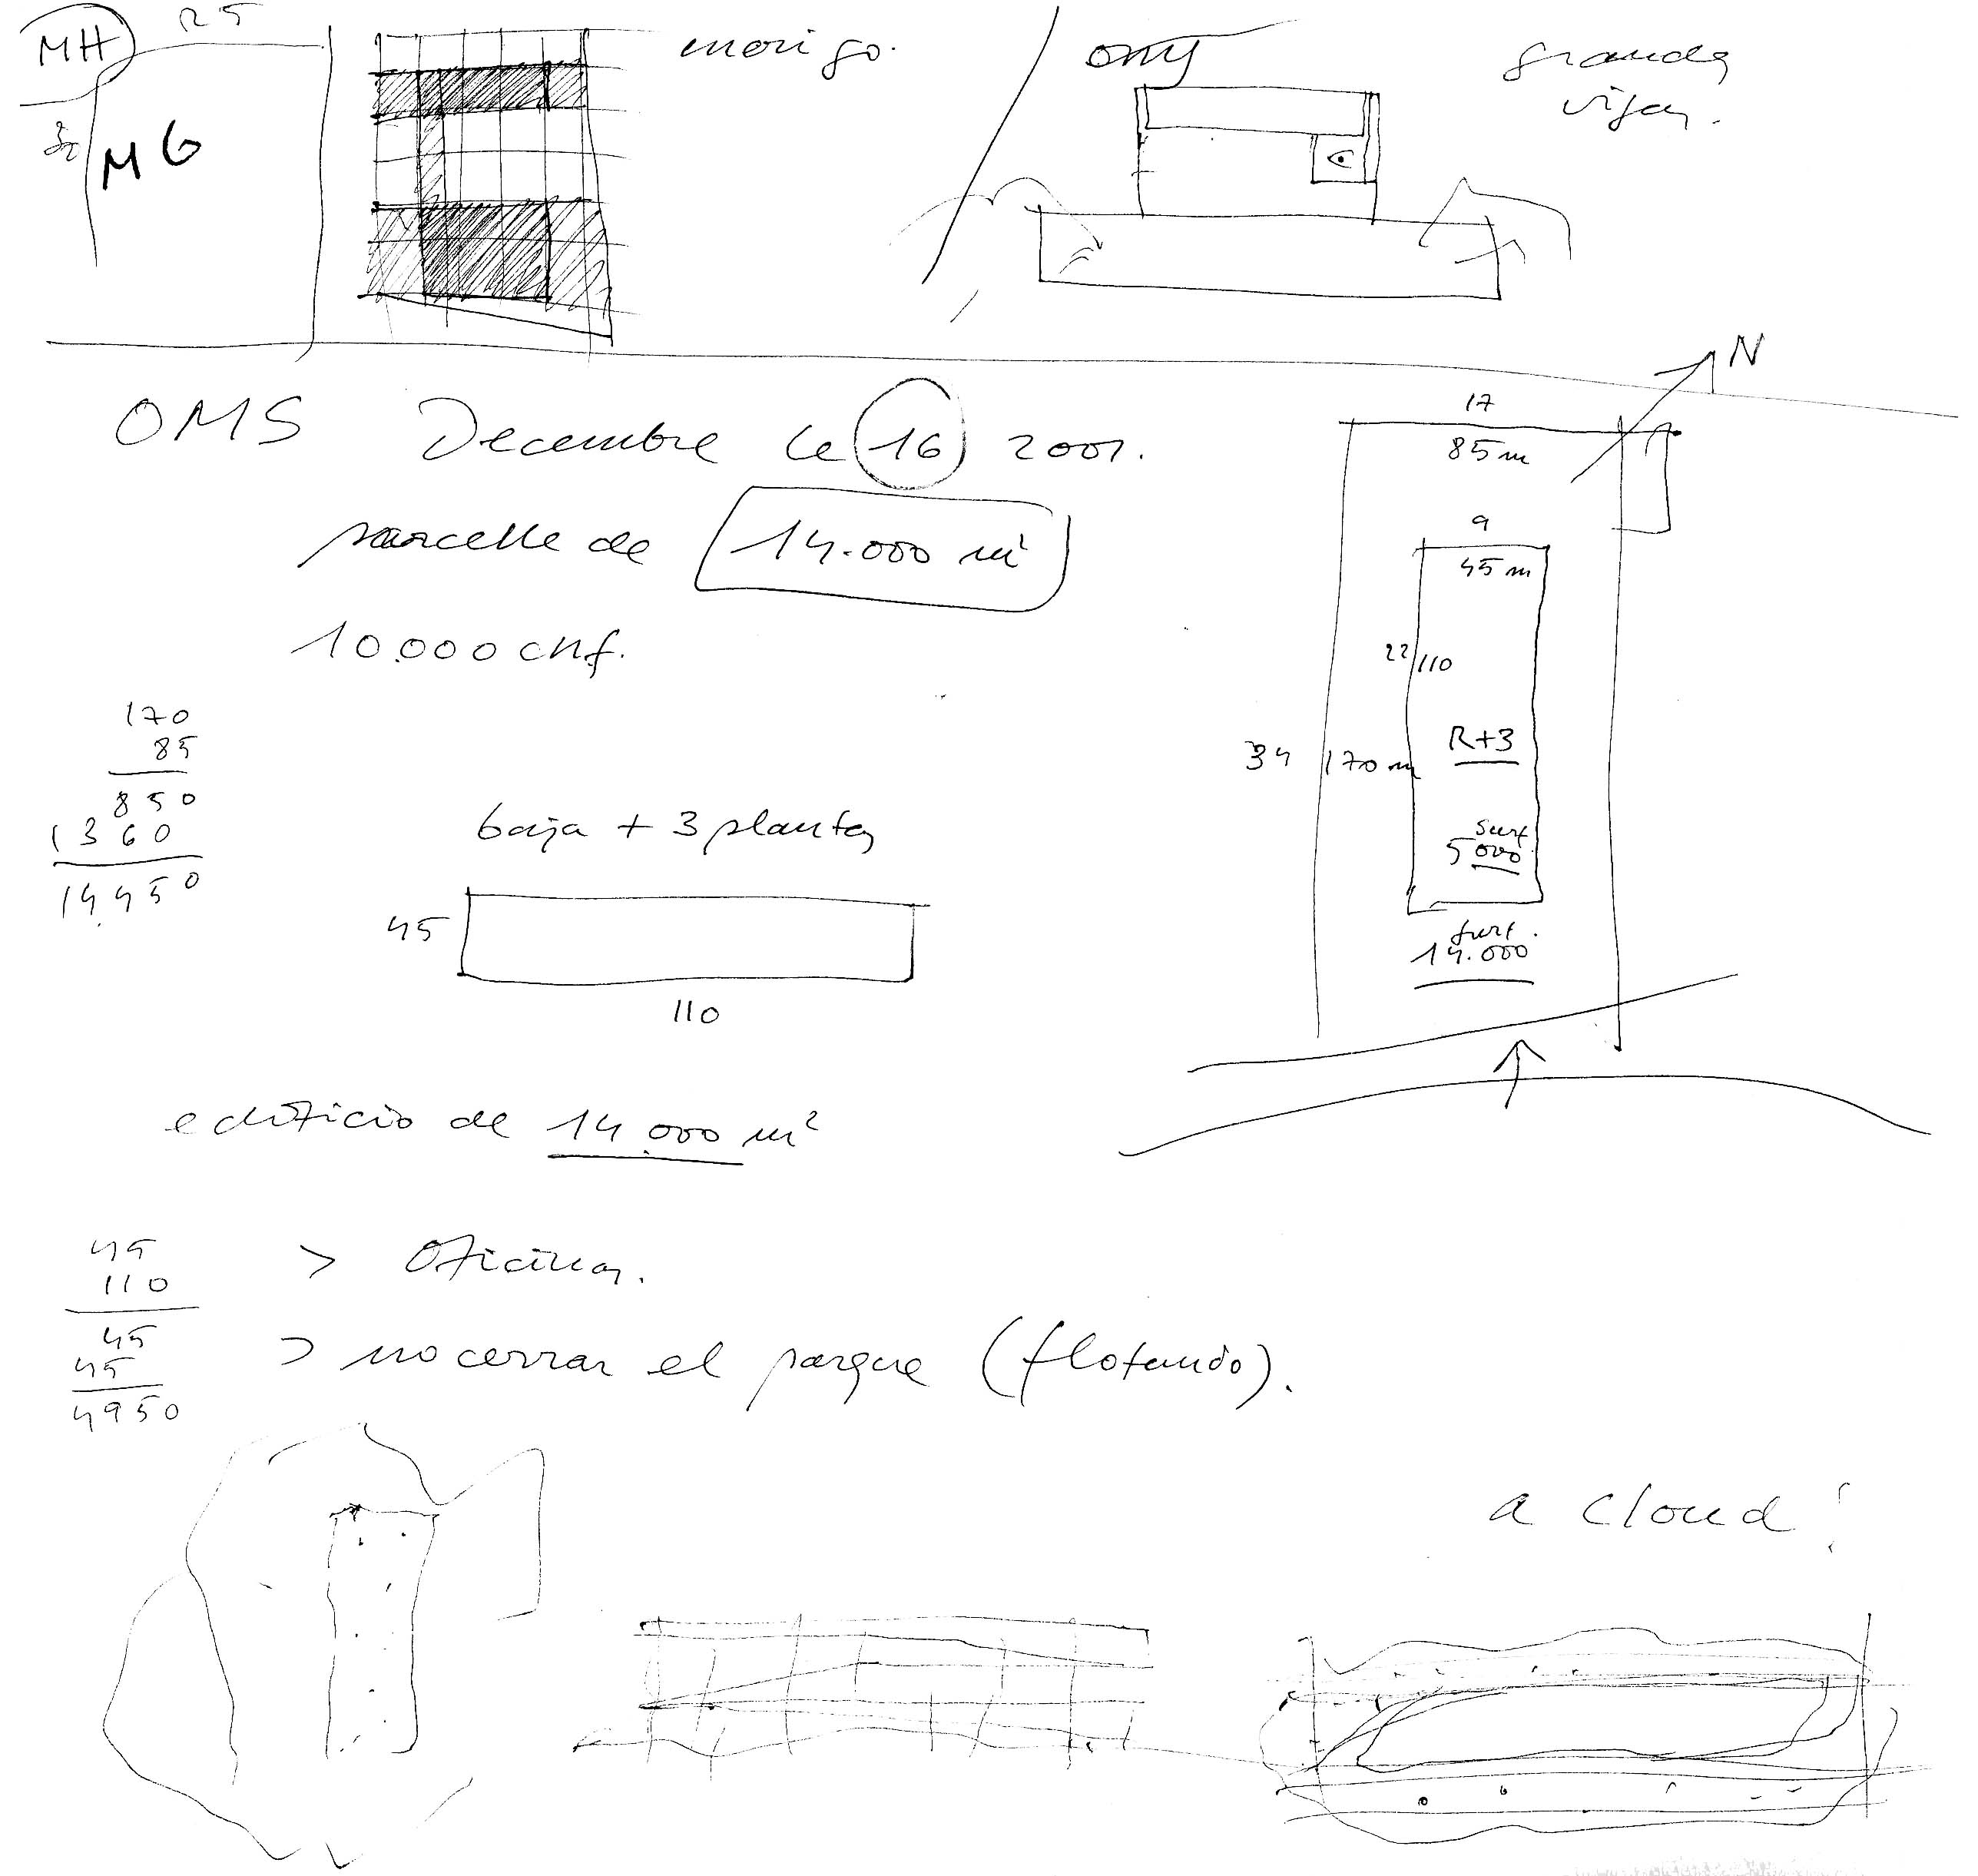 MH
25
MG
OMS
grandes
vigas.
N
OMS Decembre le 16 2001.
17
85 m
parcelle de 14.000 m²
9
45 m
10.000 CHF.
22 110
170
85
850
1360
14.450
34 170 m
R+3
baja + 3 plantas
surf
5000
45
surf.
14.000
110
edificio de 14.000 m²
45
110
45
45
4950
> Oficinas.
> no cerrar el parque (flotando).
a cloud!